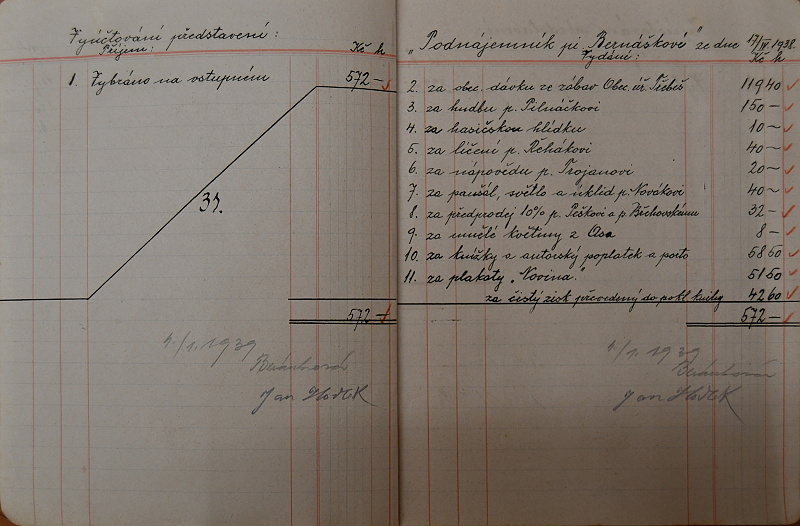 Vyúčtování představení:
Příjem: Kč h
1. Vybráno na vstupném 572 -
31.
572 -
4/1. 1939
Jan
"Podnájemník pí Bernáškové" ze dne 17/IV. 1938.
Vydání: Kč h
2. za obec. dávku ze zábav Obec. úř. Třebeš 119 40
3. za hudbu p. Pilnáčkovi 150 -
4. za hasičskou hlídku 10 -
5. za líčení p. Řehákovi 40 -
6. za nápovědu p. Trojanovi 20 -
7. za paušál, světlo a úklid p. Novákovi 40 -
8. za předprodej 10% p. Peškovi a p. Břchovskému 32 -
9. za umělé květiny z Asa 8 -
10. za knížky a autorský poplatek a porto 58 50
11. za plakáty "Novina" 51 50
za čistý zisk převedený do pokl. knihy 42 60
572 -
4/1. 1939
Jan